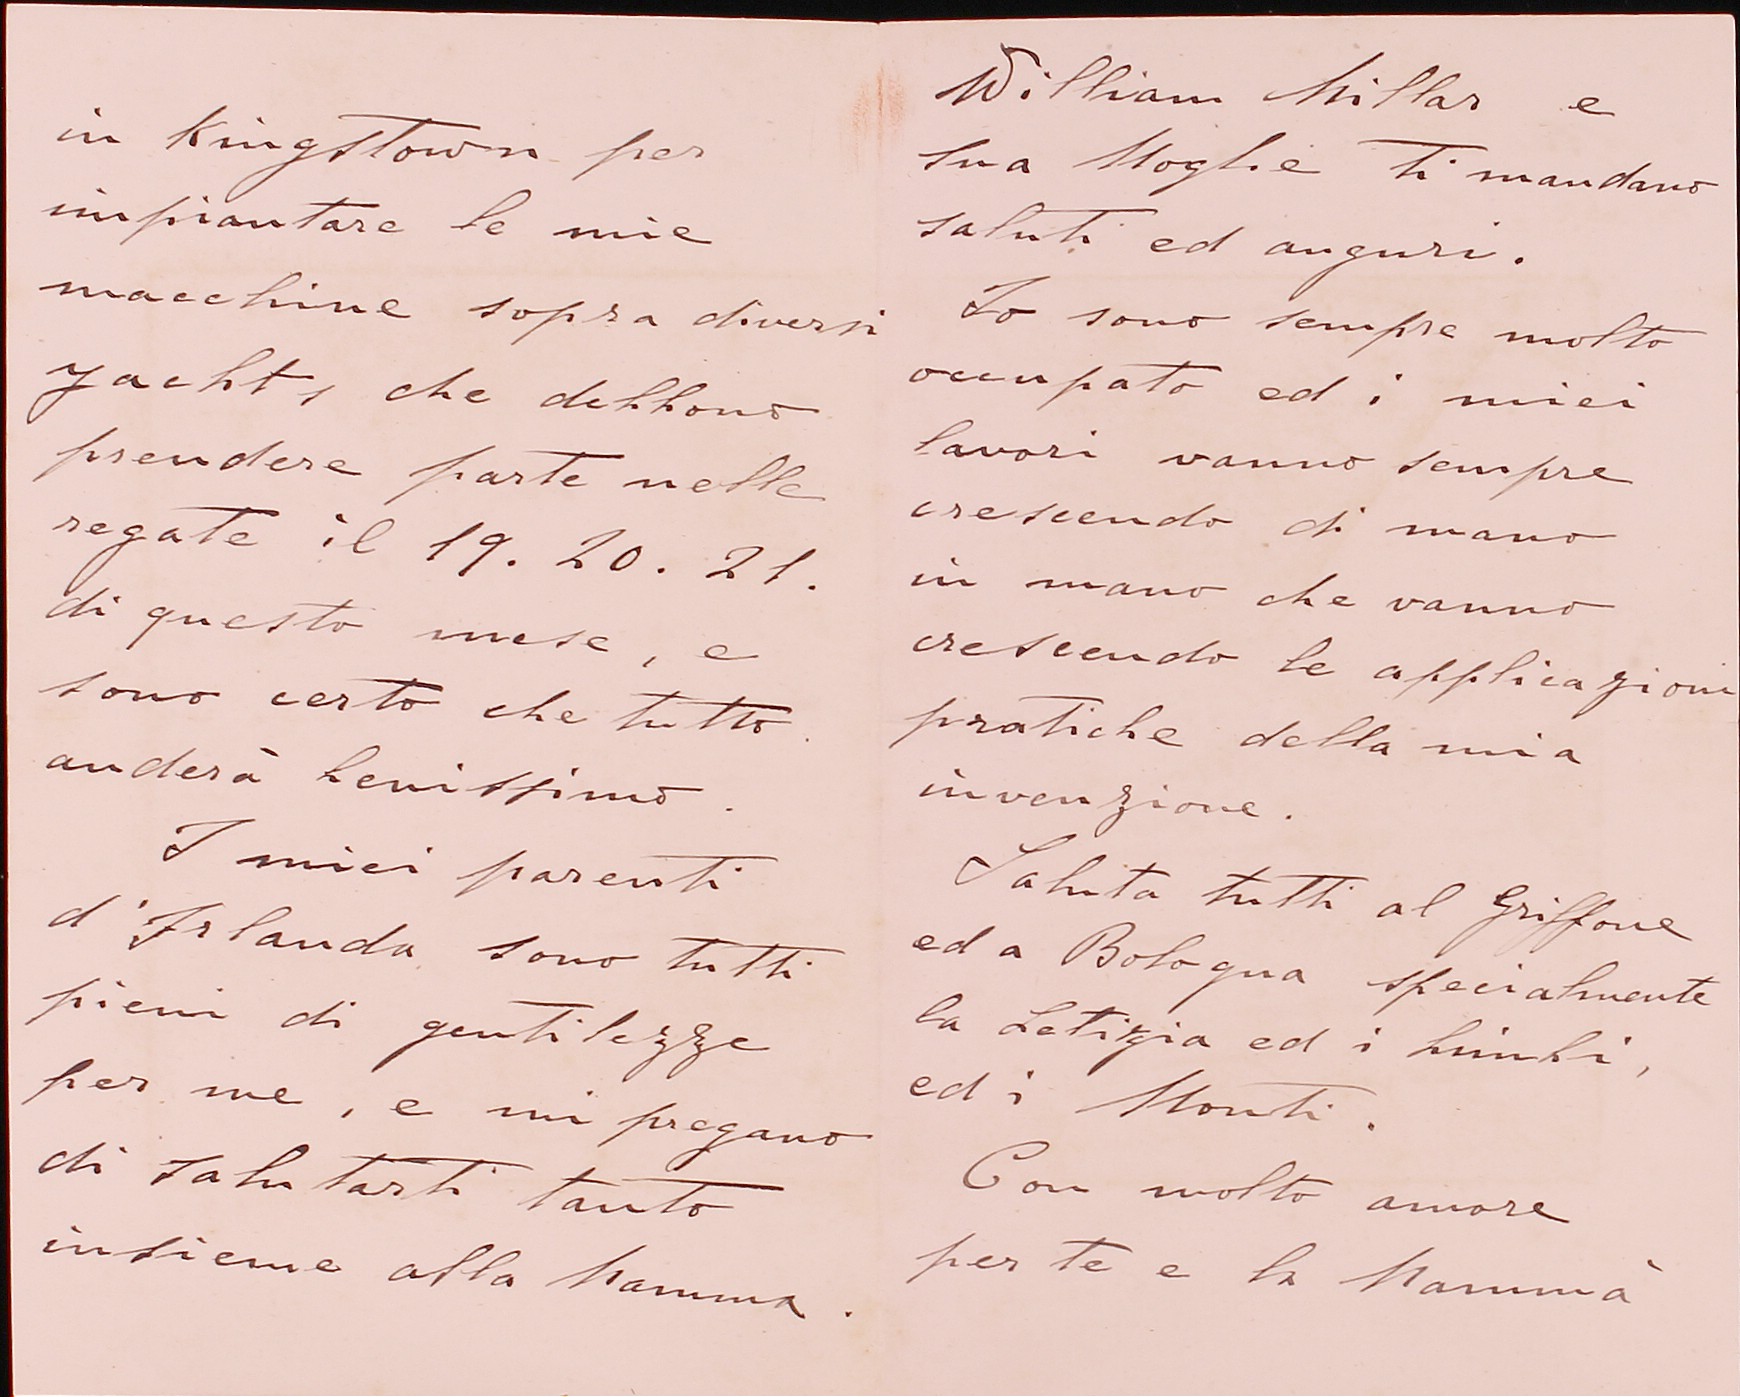 in Kingstown per
impiantare le mie
macchine sopra diversi
yachts che debbono
prendere parte nelle
regate il 19. 20. 21.
di questo mese, e
sono certo che tutto
anderà benissimo.
I miei parenti
d'Irlanda sono tutti
pieni di gentilezze
per me, e mi pregano
di salutarti tanto
insieme alla Mamma.
William Millar e
sua Moglie ti mandano
saluti ed auguri.
Io sono sempre molto
occupato ed i miei
lavori vanno sempre
crescendo di mano
in mano che vanno
crescendo le applicazioni
pratiche della mia
invenzione.
Saluta tutti al Griffone
ed a Bologna specialmente
la Letizia ed i bimbi,
ed i Monti.
Con molto amore
per te e la Mammà